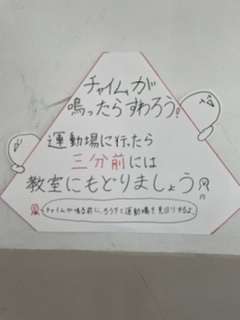 チャイムが
鳴ったらすわろう!
運動場に行ったら
三分前には
教室にもどりましょう
チャイムが鳴る前に、ろうかと運動場を見回りするよ。